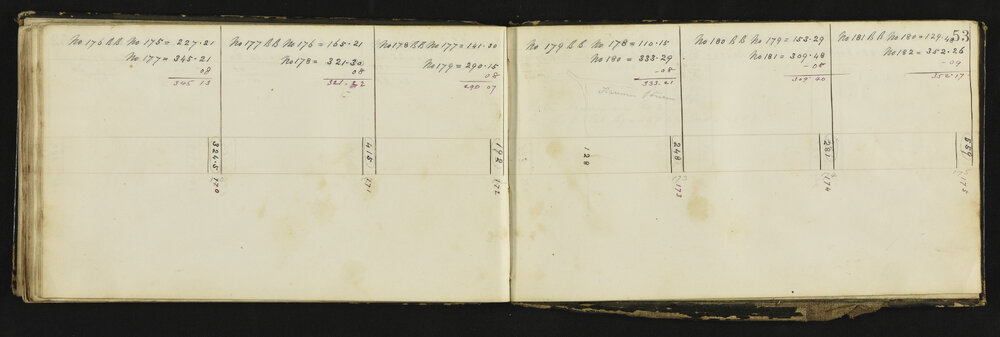 No 176 B.B. No 175 = 227.21
No 177 = 345.21
08
345 13
No 177 B.B No 176 = 165.21
No 178 = 321.30
08
321.22
No 178 B.B No 177 = 141.30
No 179 = 290.15
08
290 07
No 179 B.B. No 178 = 110.15
No 180 = 333.29
-08
333.21
No 180 B.B No 179 = 153.29
No 181 = 309.48
-08
309 40
53
No 181 B.B No 180 = 129.48
No 182 = 352.26
-09
352.17
3245
415
192
128
248
281
559
170
171
172
173
173
174
174
175
175